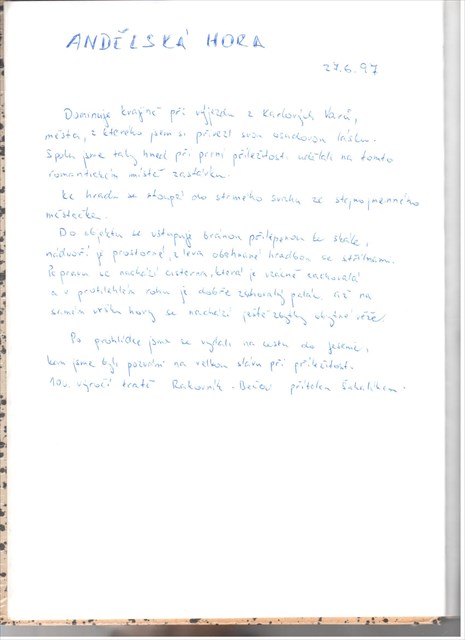 ANDĚLSKÁ HORA
27.6.97
Dominuje krajině při výjezdu z Karlových Varů,
města, z kterého jsem si přivezl svou osudovou lásku.
Spolu jsme tady hned při první příležitosti udělali na tomto
romantickém místě zastávku.
Ke hradu se stoupá do strmého svahu ze stejnojmenného
městečka.
Do objektu se vstupuje bránou přilepenou ke skále,
nádvoří je prostorné, z leva obehnané hradbou se střílnami.
Po pravu se nachází cisterna, která je vzácně zachovalá
a v protilehlém rohu je dobře zachovalý palác. Až na
samém vršku hory se nachází ještě zbytky obytné věže.
Po prohlídce jsme se vydali na cestu do Jesenice,
kam jsme byli pozváni na velkou slávu při příležitosti
100. výročí tratě Rakovník - Bečov přítelem